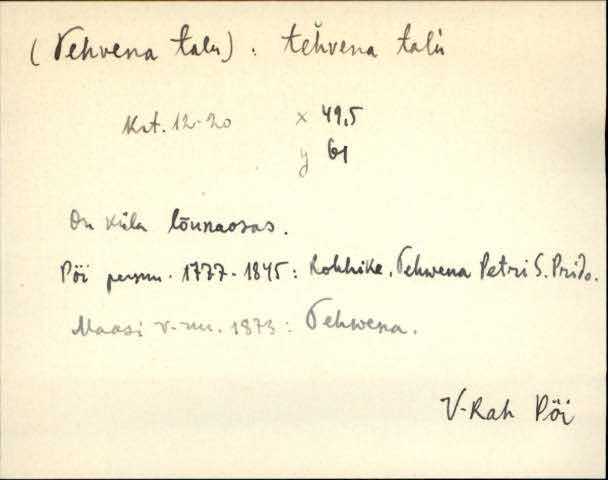 (Tehvena talu) : tehvena talu
Krt. 12-20 x 49,5
y 61
On küla lõunaosas.
Pöi persnu. 1777-1845: Rohhike, Tehwena Petri S. Prido.
Maasi v-nu. 1873: Tehwena.
V-Rah Pöi